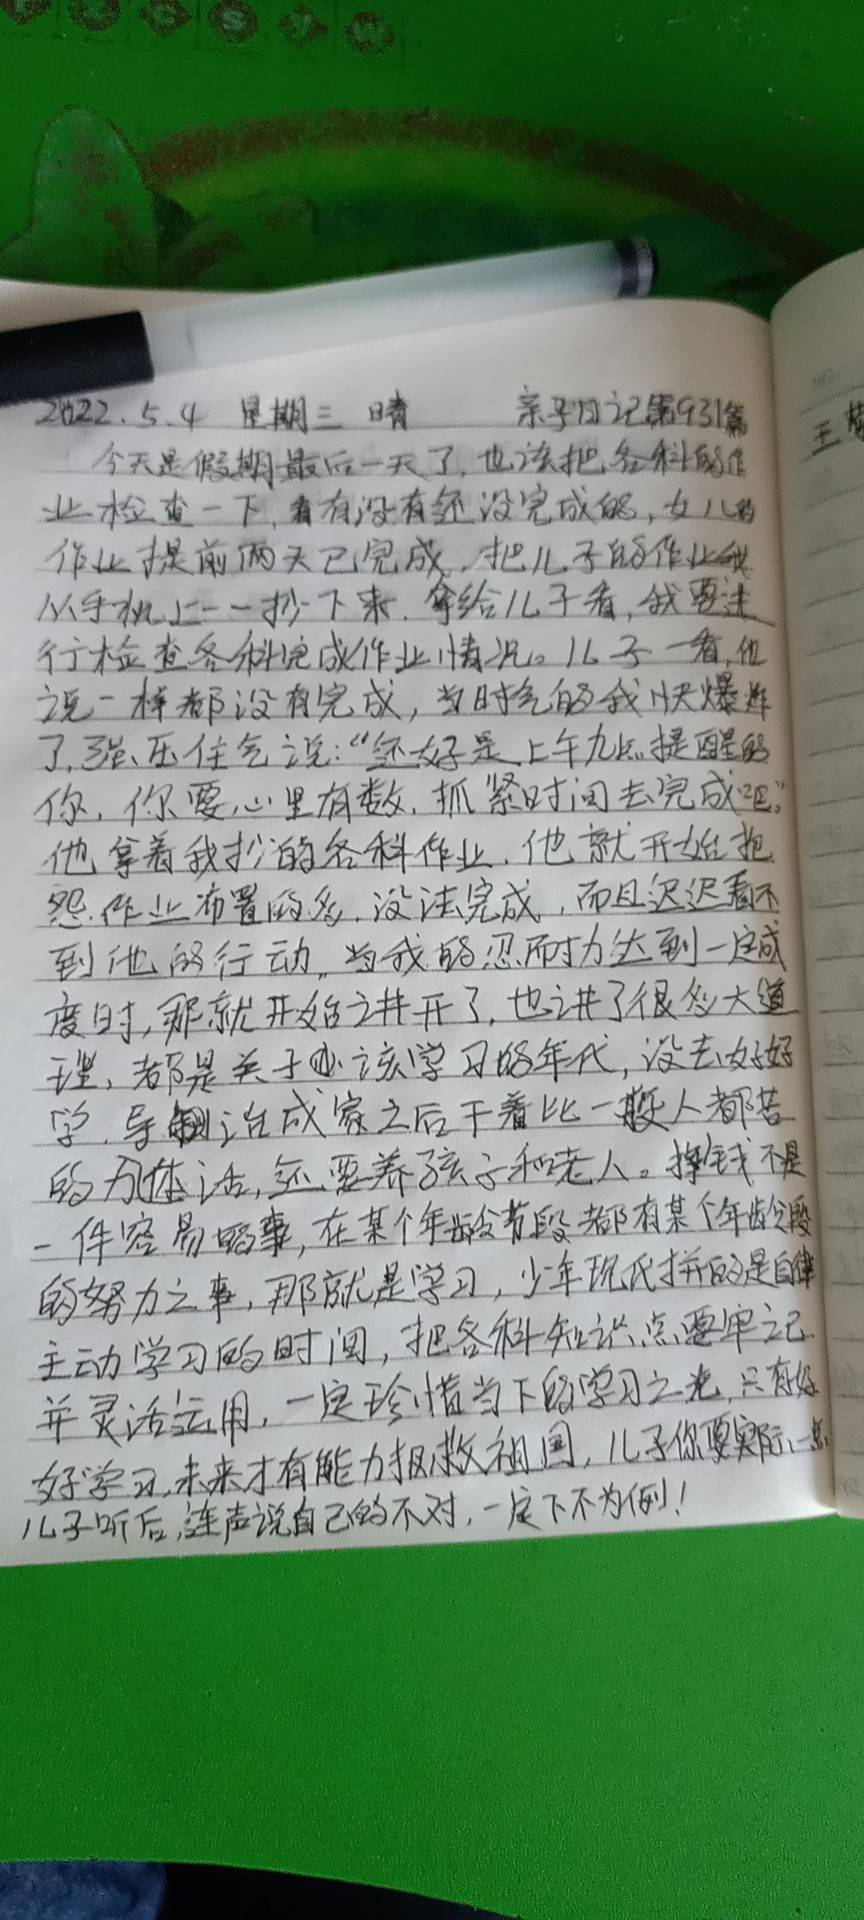 C S Y W
2022.5.4 星期三 晴 亲子日记第931篇
今天是假期最后一天了,也该把各科的作
业检查一下,看有没有还没完成的,女儿的
作业提前两天已完成,把儿子的作业我
从手机上一一抄下来,拿给儿子看,我要进
行检查各科完成作业情况。儿子一看,他
说一样都没有完成,当时气的我快爆炸
了,强压住气说:“还好是上午九点提醒的
你,你要心里有数,抓紧时间去完成吧。”
他拿着我抄的各科作业,他就开始抱
怨作业布置的多,没法完成,而且迟迟看不
到他的行动。当我的忍耐力达到一定成
度时,那就开始讲开了,也讲了很多大道
理,都是关于应该学习的年代,没去好好
学,导制治成家之后干着比一般人都苦
的力体活,还要养孩子和老人。挣钱不是
一件容易的事,在某个年龄节段都有某个年龄段
的努力之事,那就是学习,少年现代拼的是自律
主动学习的时间,把各科知识点要牢记
并灵活运用,一定珍惜当下的学习之光,只有好
好学习,未来才有能力报效祖国,儿子你要实际一点
儿子听后,连声说自己的不对,一定下不为例!
王